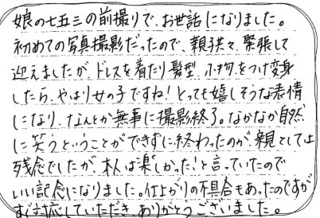 娘の七五三の前撮りで、お世話になりました。
初めての写真撮影だったので、親子共々、緊張して
迎えましたが、ドレスを着たり髪型、小物をつけ変身
したら、やはり女の子ですね!とっても嬉しそうな表情
になり、なんとか無事に撮影終了。なかなか自然
に笑うということができずに終わったのが、親としては
残念でしたが、本人は楽しかった!と言っていたので
いい記念になりました。仕上がりの不具合もあったのですが
すぐ対応していただき、ありがとうございました。